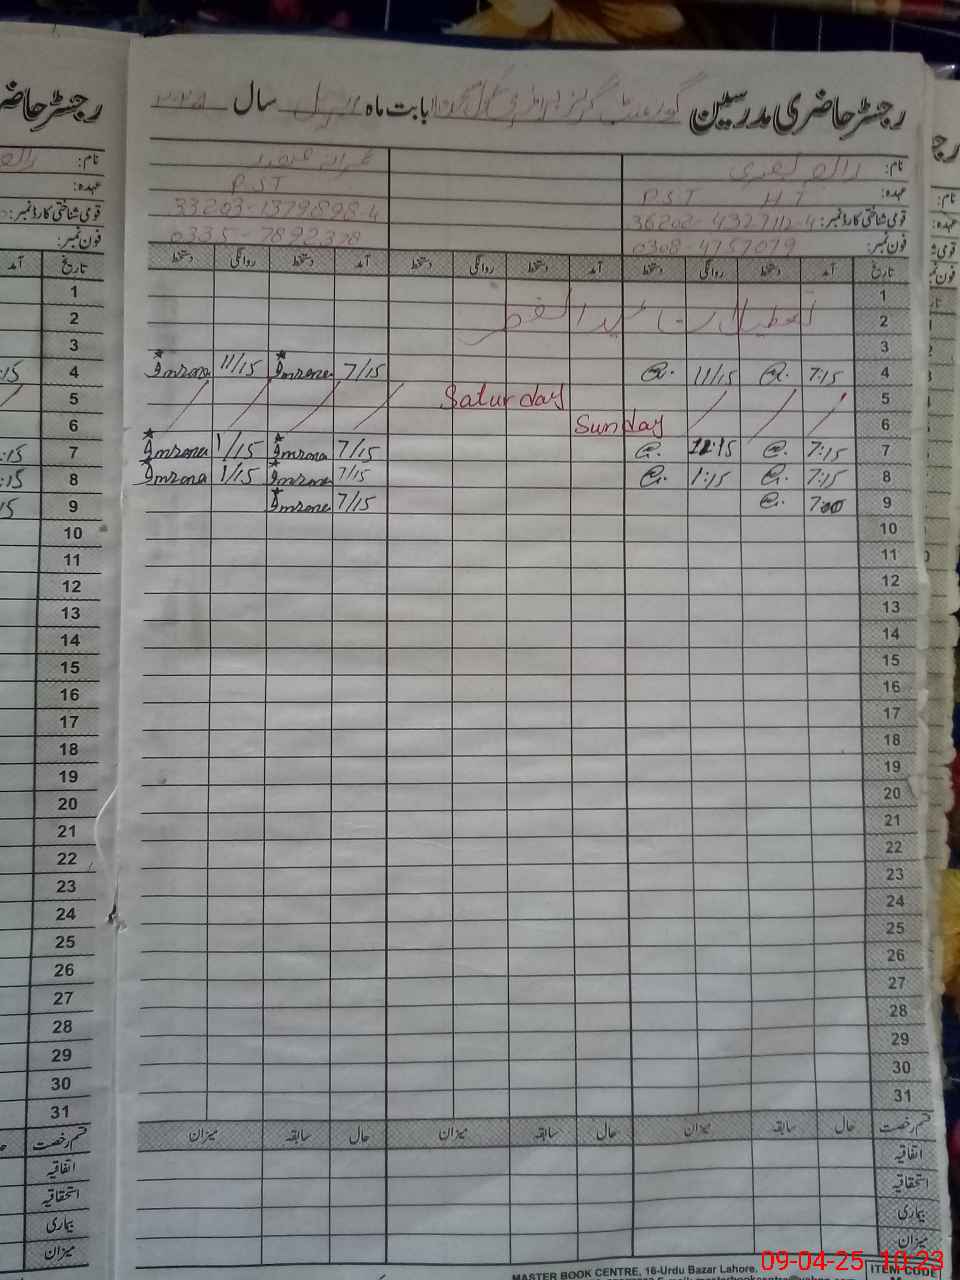 رجسٹر حاضری مدرسین گورنمنٹ گرلز پرائمری سکول بابت ماہ اپریل سال ۲۰۲۵
نام:
عہدہ: P.S.T H T P.S.T
قومی شناختی کارڈ نمبر: 36202-4327112-4 33203-1379898-4
فون نمبر: 0308-4757079 0335-7892378
تاریخ آمد دستخط روانگی دستخط آمد دستخط روانگی دستخط آمد دستخط روانگی دستخط
1
2 تعطیلات عید الفطر
3
4 7:15 11/15 7/15 Imrana 11/15 Imrana
5 Saturday
6 Sunday
7 7:15 12:15 7/15 Imrana 1/15 Imrana
8 7:15 1:15 7/15 Imrana 1/15 Imrana
9 7:00 7/15 Imrana
10
11
12
13
14
15
16
17
18
19
20
21
22
23
24
25
26
27
28
29
30
31
قسم رخصت حال سابقہ میزان حال سابقہ میزان حال سابقہ میزان
اتفاقیہ
استحقاقیہ
بیماری
میزان
MASTER BOOK CENTRE, 16-Urdu Bazar Lahore.
ITEM CODE
09-04-25 10:23
رجسٹر حاضری
نام:
عہدہ:
قومی شناختی کارڈ نمبر:
فون نمبر:
تاریخ آمد
1
2
3
4 :15
5
6
7 :15
8 :15
9 15
10
11
12
13
14
15
16
17
18
19
20
21
22
23
24
25
26
27
28
29
30
31
قسم رخصت
اتفاقیہ
استحقاقیہ
بیماری
میزان